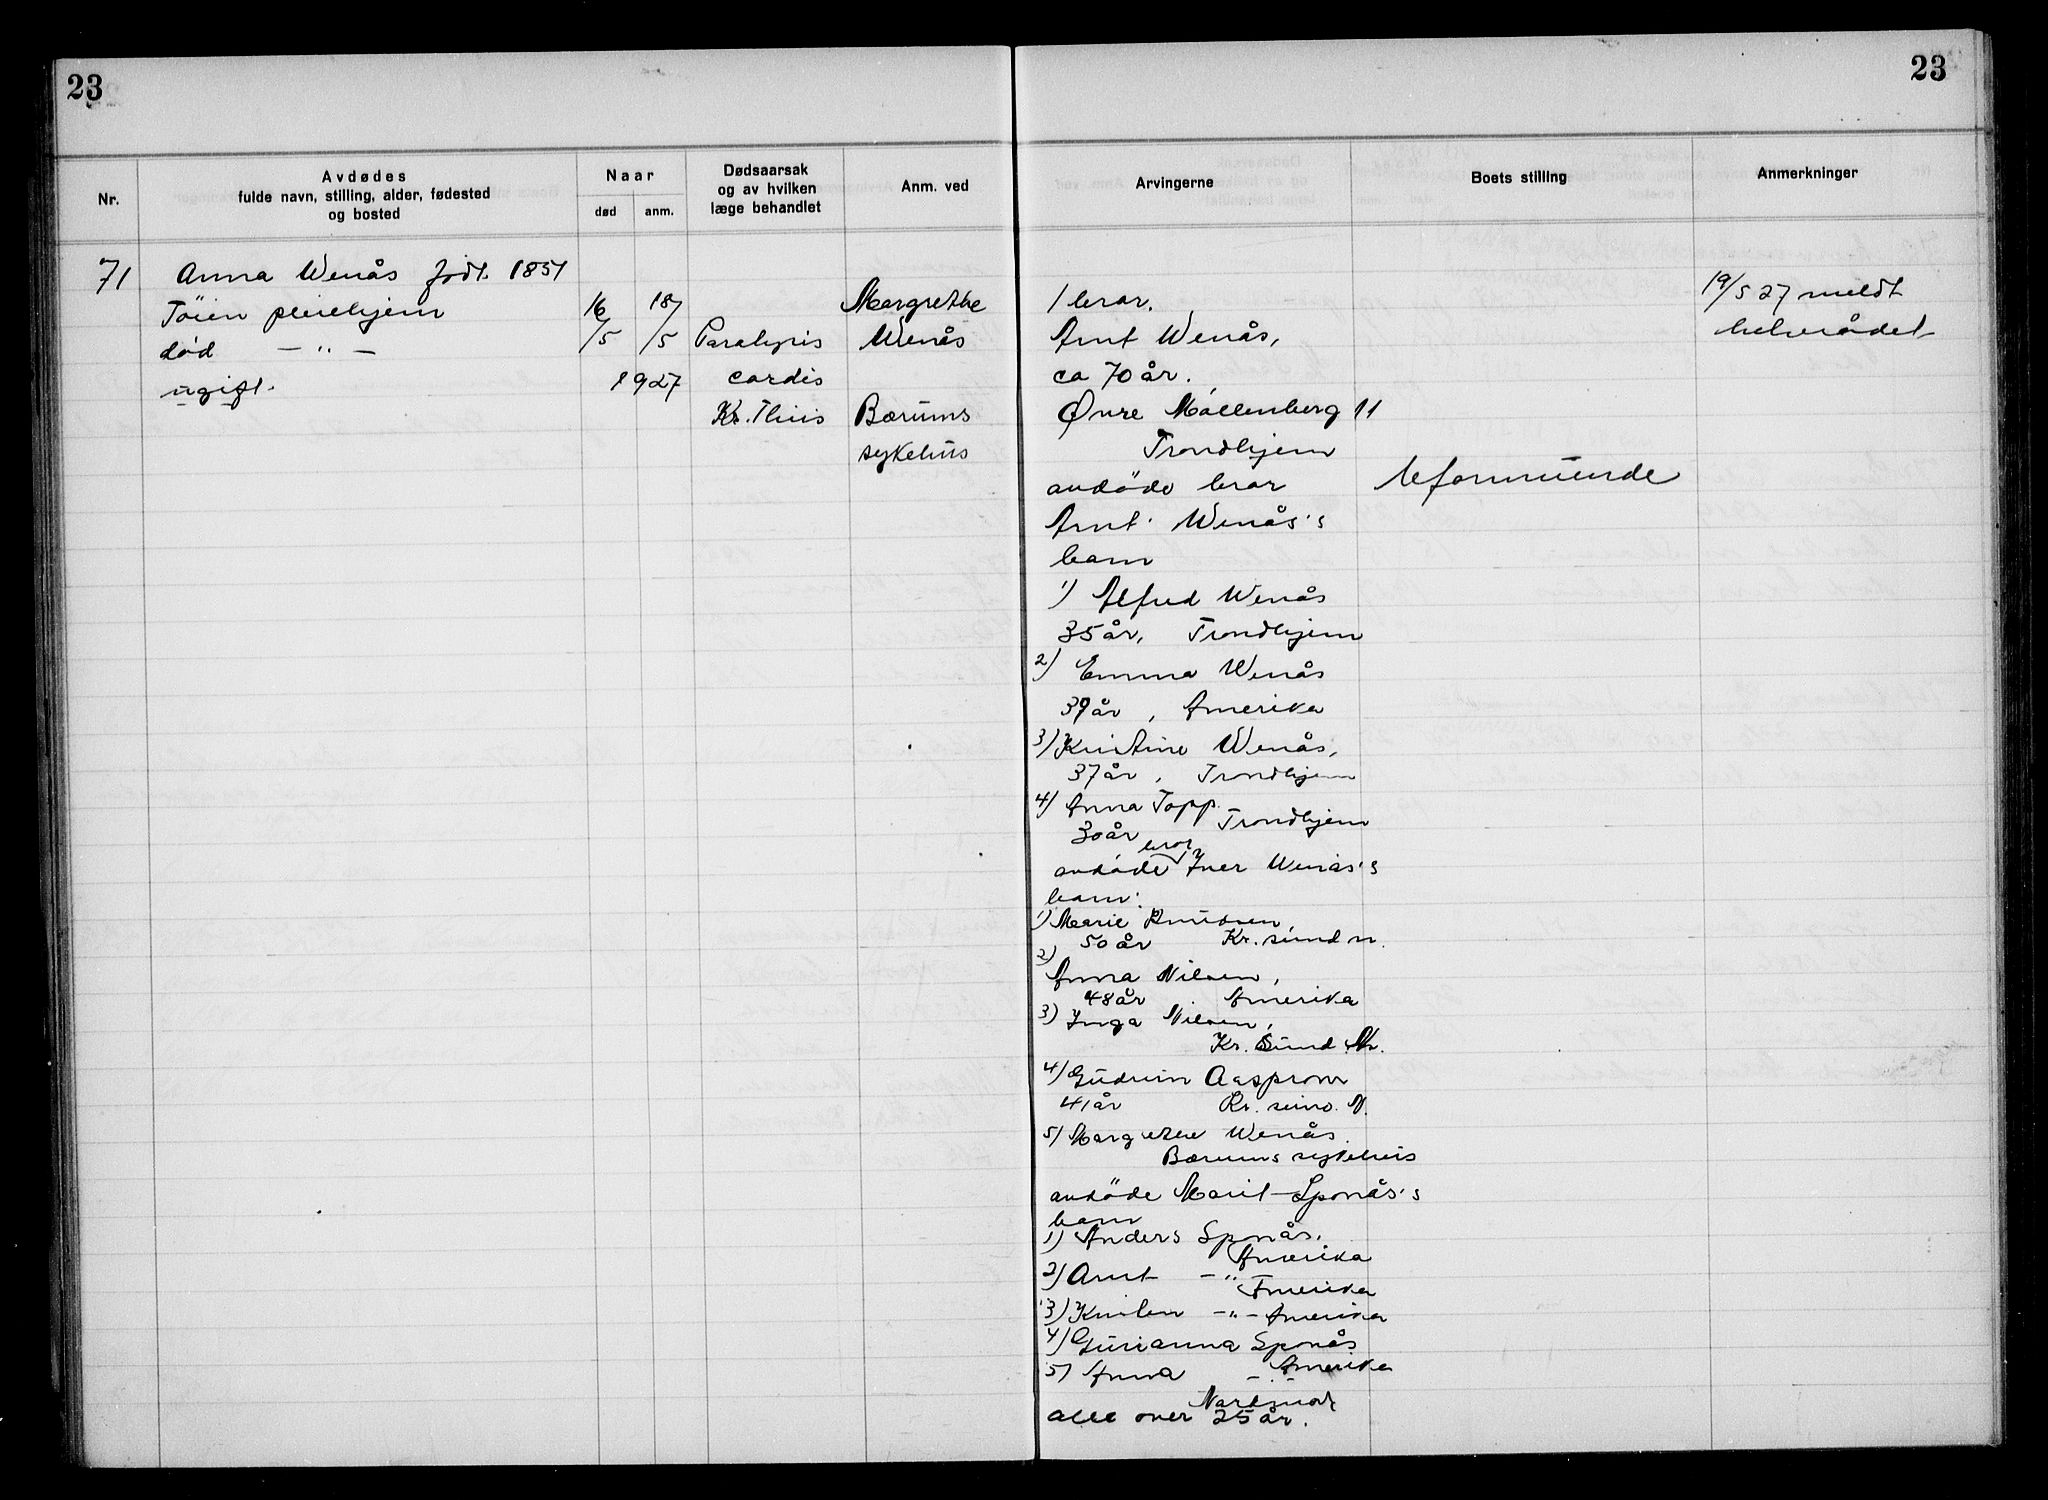 23
23
Nr.
Avdødes
fulde navn, stilling, alder, fødested
og bosted
Naar
død
anm.
Dødsaarsak
og av hvilken
læge behandlet
Anm. ved
Arvingerne
Boets stilling
Anmerkninger
71
Anna Wenås født 1851
Töien pleiehjem
død — " —
ugift.
16/5
18/5
1927
Paralysis
cordis
Kr. Thiis
Margrethe
Wenås
Bærums
sykehus
1 bror.
Arnt Wenås,
ca 70 år.
Øvre Möllenberg 11
Trondhjem
avdöde bror
Arnt Wenås's
barn
1) Alfred Wenås
35 år, Trondhjem
2) Emma Wenås
39 år, Amerika
3) Kristine Wenås,
37 år, Trondhjem
4) Anna Topp.
30 år Trondhjem
bror
avdöde Iver Wenås's
barn:
1) Marie Knudsen,
50 år Kr. sund n.
2)
Anna Nilsen,
48 år Amerika
3) Inga Nilsen,
Kr. Sund N.
4) Gudrun
41 år Kr. sund. N.
5) Margrethe Wenås.
Bærums sykehus
avdöde Marit Sponås's
barn
1) Anders Sponås,
Amerika
2) Arnt — " —
Amerika
3) — " — Amerika
4) Gurianna Sponås
Amerika
5) Anna — " —
alle over 25 år.
uformuende
19/5 27 meldt